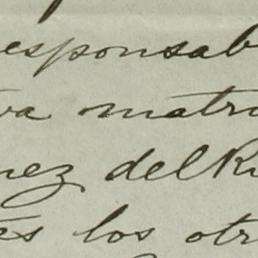 responsab
va matri
nez del Ri
és los otr